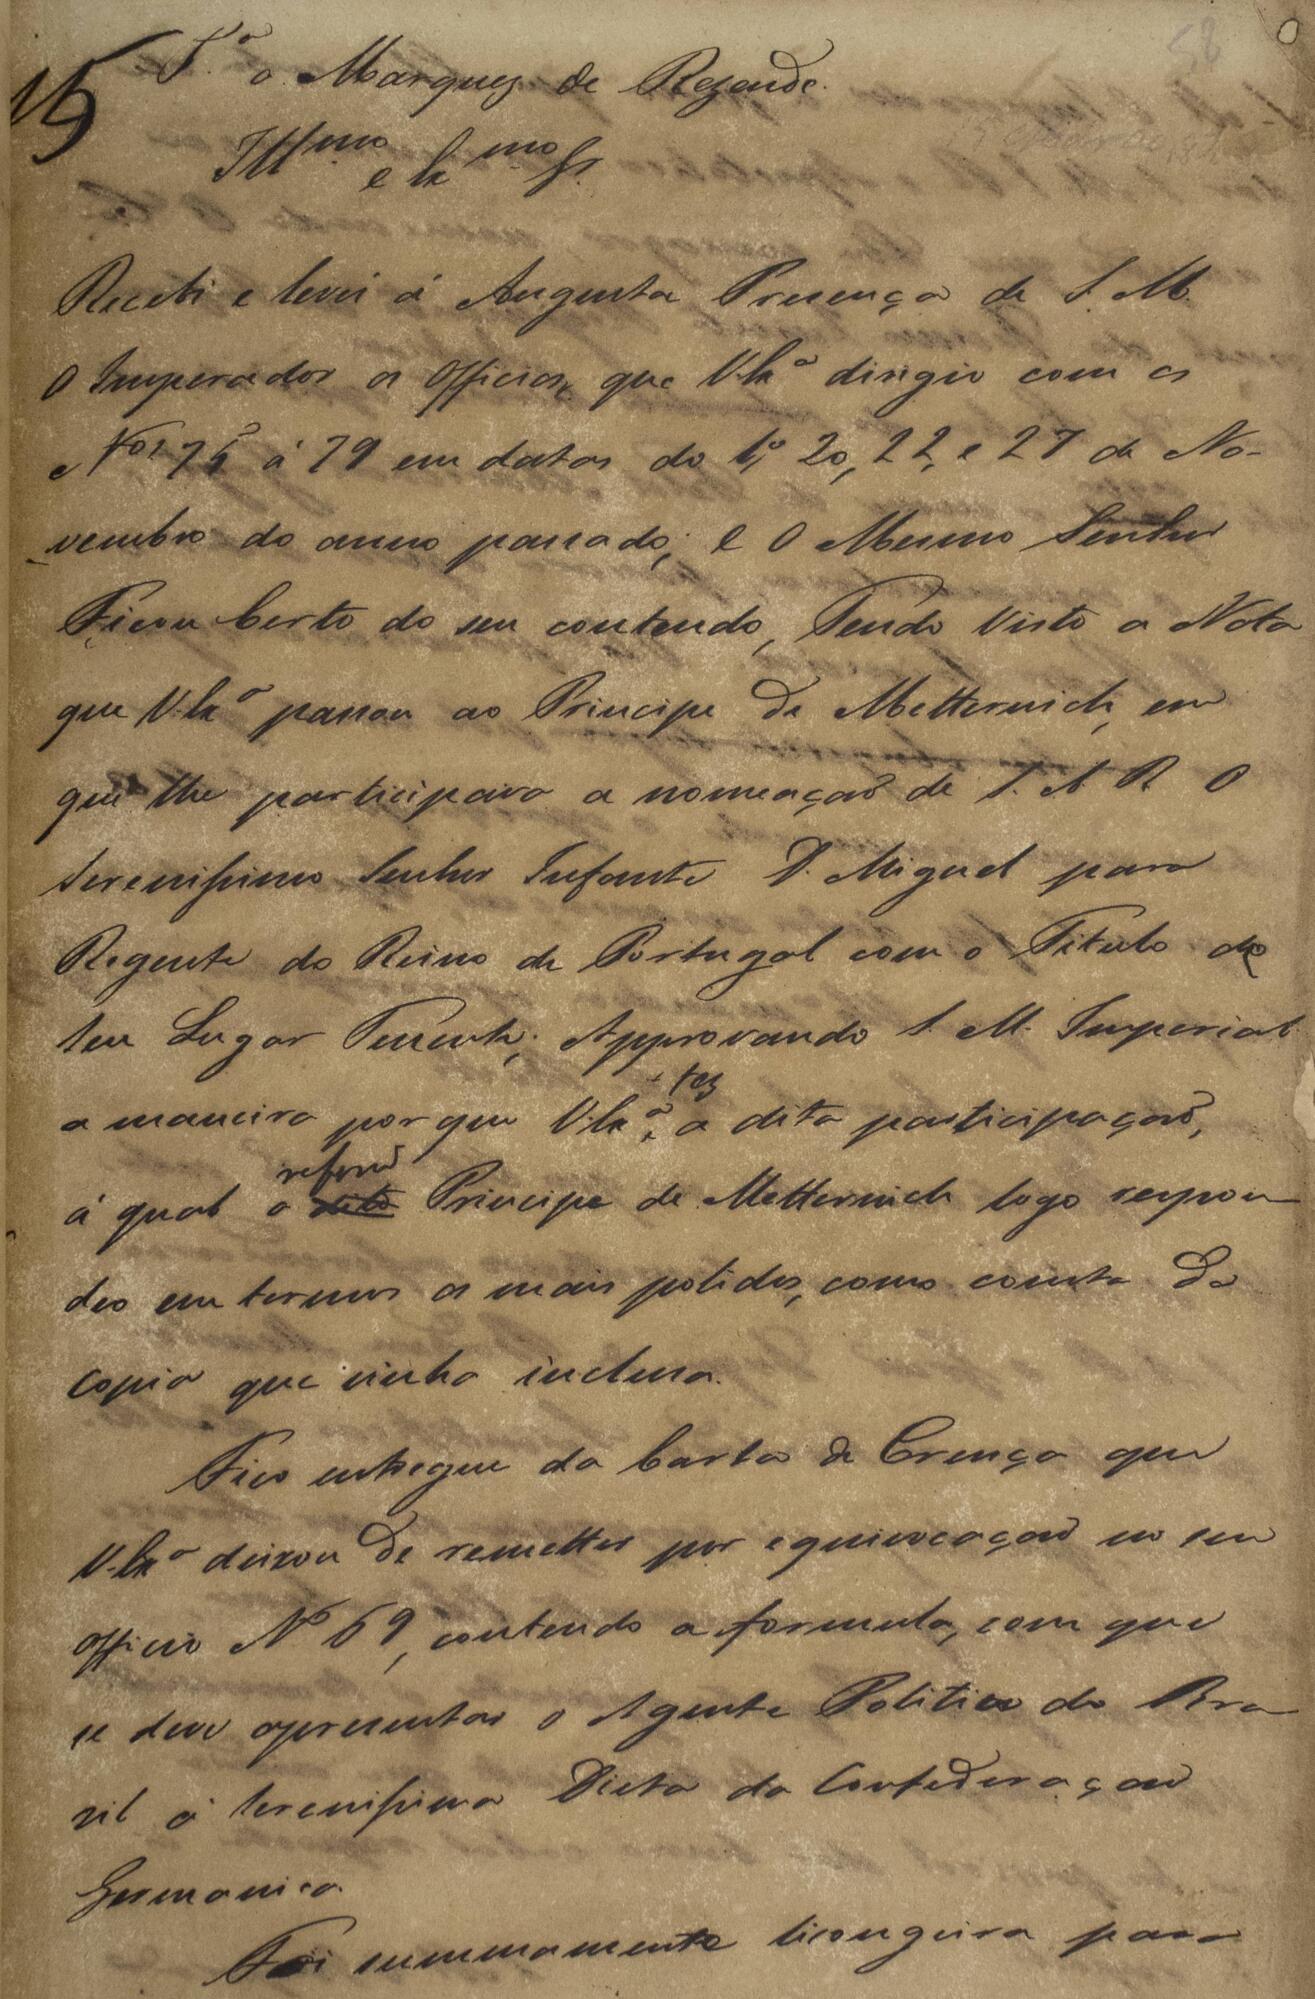 15
58
P.ª o Marquez de Rezende.
Illmo e Exmo Sr.
Recebi e levei á Augusta Presença de S. M.
O Imperador os Officios, que V. Exª dirigio com os
Nos 75 á 79 em datas do 1º, 20, 22, e 27 de No-
vembro do anno passado; e O Mesmo Senhor
Ficou Certo do seu contendo, Tendo Visto a Nota
que V. Exª passou ao Principe de Metternich, em
que lhe participava a nomeação de S. A. R. O
Serenissimo Senhor Infante D. Miguel para
Regente do Reino de Portugal com o Titulo de
Seu Lugar Tenente; Approvando S. M. Imperial
a maneira por que V. Exª fez a dita participação,
á qual o referido dito Principe de Metternich logo respon-
deo em termos os mais polidos, como consta da
copia que vinha inclusa.
Fico entregue da Carta de Crença que
V. Exª deixou de remetter por equivocação no seu
officio Nº 69, contendo a formula, com que
se deve apresentar o Agente Politico do Bra-
zil á Serenissima Dieta da Confederação
Germanica.
Foi summamente lisongeira para